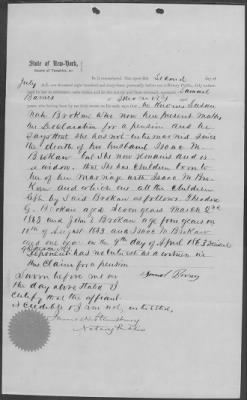 State of New-York,
County of Tompkins, ss.
Be it remembered, That upon this Second day of
July A.D. one thousand eight hundred and sixty-three personally before me a Notary Public
Samuel
Barnes
who being sworn by me duly sworn he knows Susan
Brokaw who now here present makes
the Declaration for a pension and he
says that she has not intermarried since
the death of her husband Isaac M.
Brokaw but she now remains and is
a widow. that she has children born to
her of her marriage with Isaac M. Bro
kaw and which are all the children
left by said Brokaw as follows Theodore
G. Brokaw aged seven years March 2nd
1863 and John S. Brokaw age four years on
10th of August 1863 and Isaac M. Brokaw
aged one year on the 9th day of April 1863
Deponent has no interest as a witness in
this claim for a pension
Sworn before me on
the day above stated I
certify that the affiant
is credible & I am not interested,
Notary Public